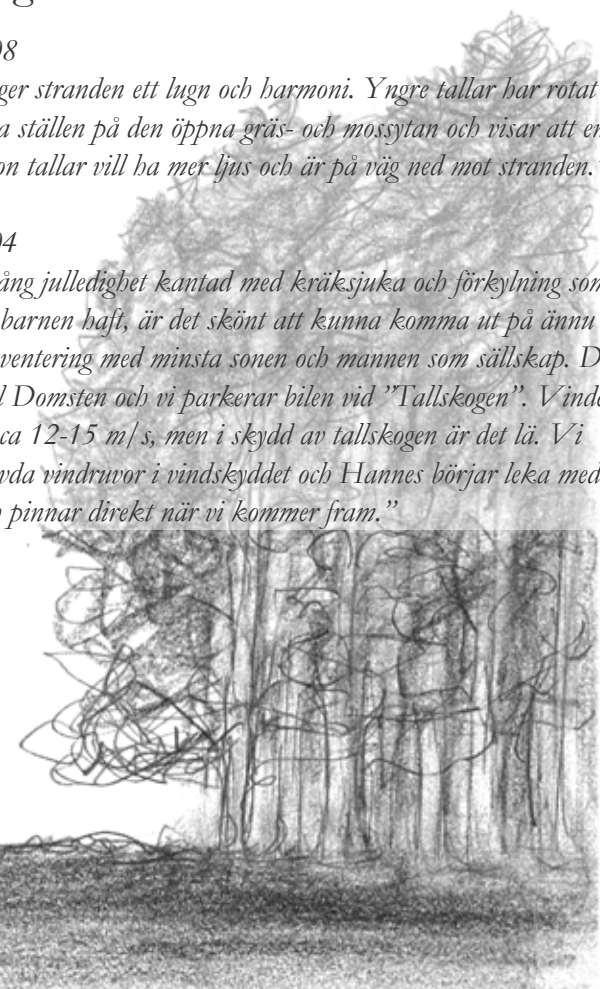 08
ger stranden ett lugn och harmoni. Yngre tallar har rotat
a ställen på den öppna gräs- och mossytan och visar att en
on tallar vill ha mer ljus och är på väg ned mot stranden.
04
ång julledighet kantad med kräksjuka och förkylning som
barnen haft, är det skönt att kunna komma ut på ännu
ventering med minsta sonen och mannen som sällskap. D
l Domsten och vi parkerar bilen vid ”Tallskogen”. Vinde
ca 12-15 m/s, men i skydd av tallskogen är det lä. Vi
vda vindruvor i vindskyddet och Hannes börjar leka med
pinnar direkt när vi kommer fram.”